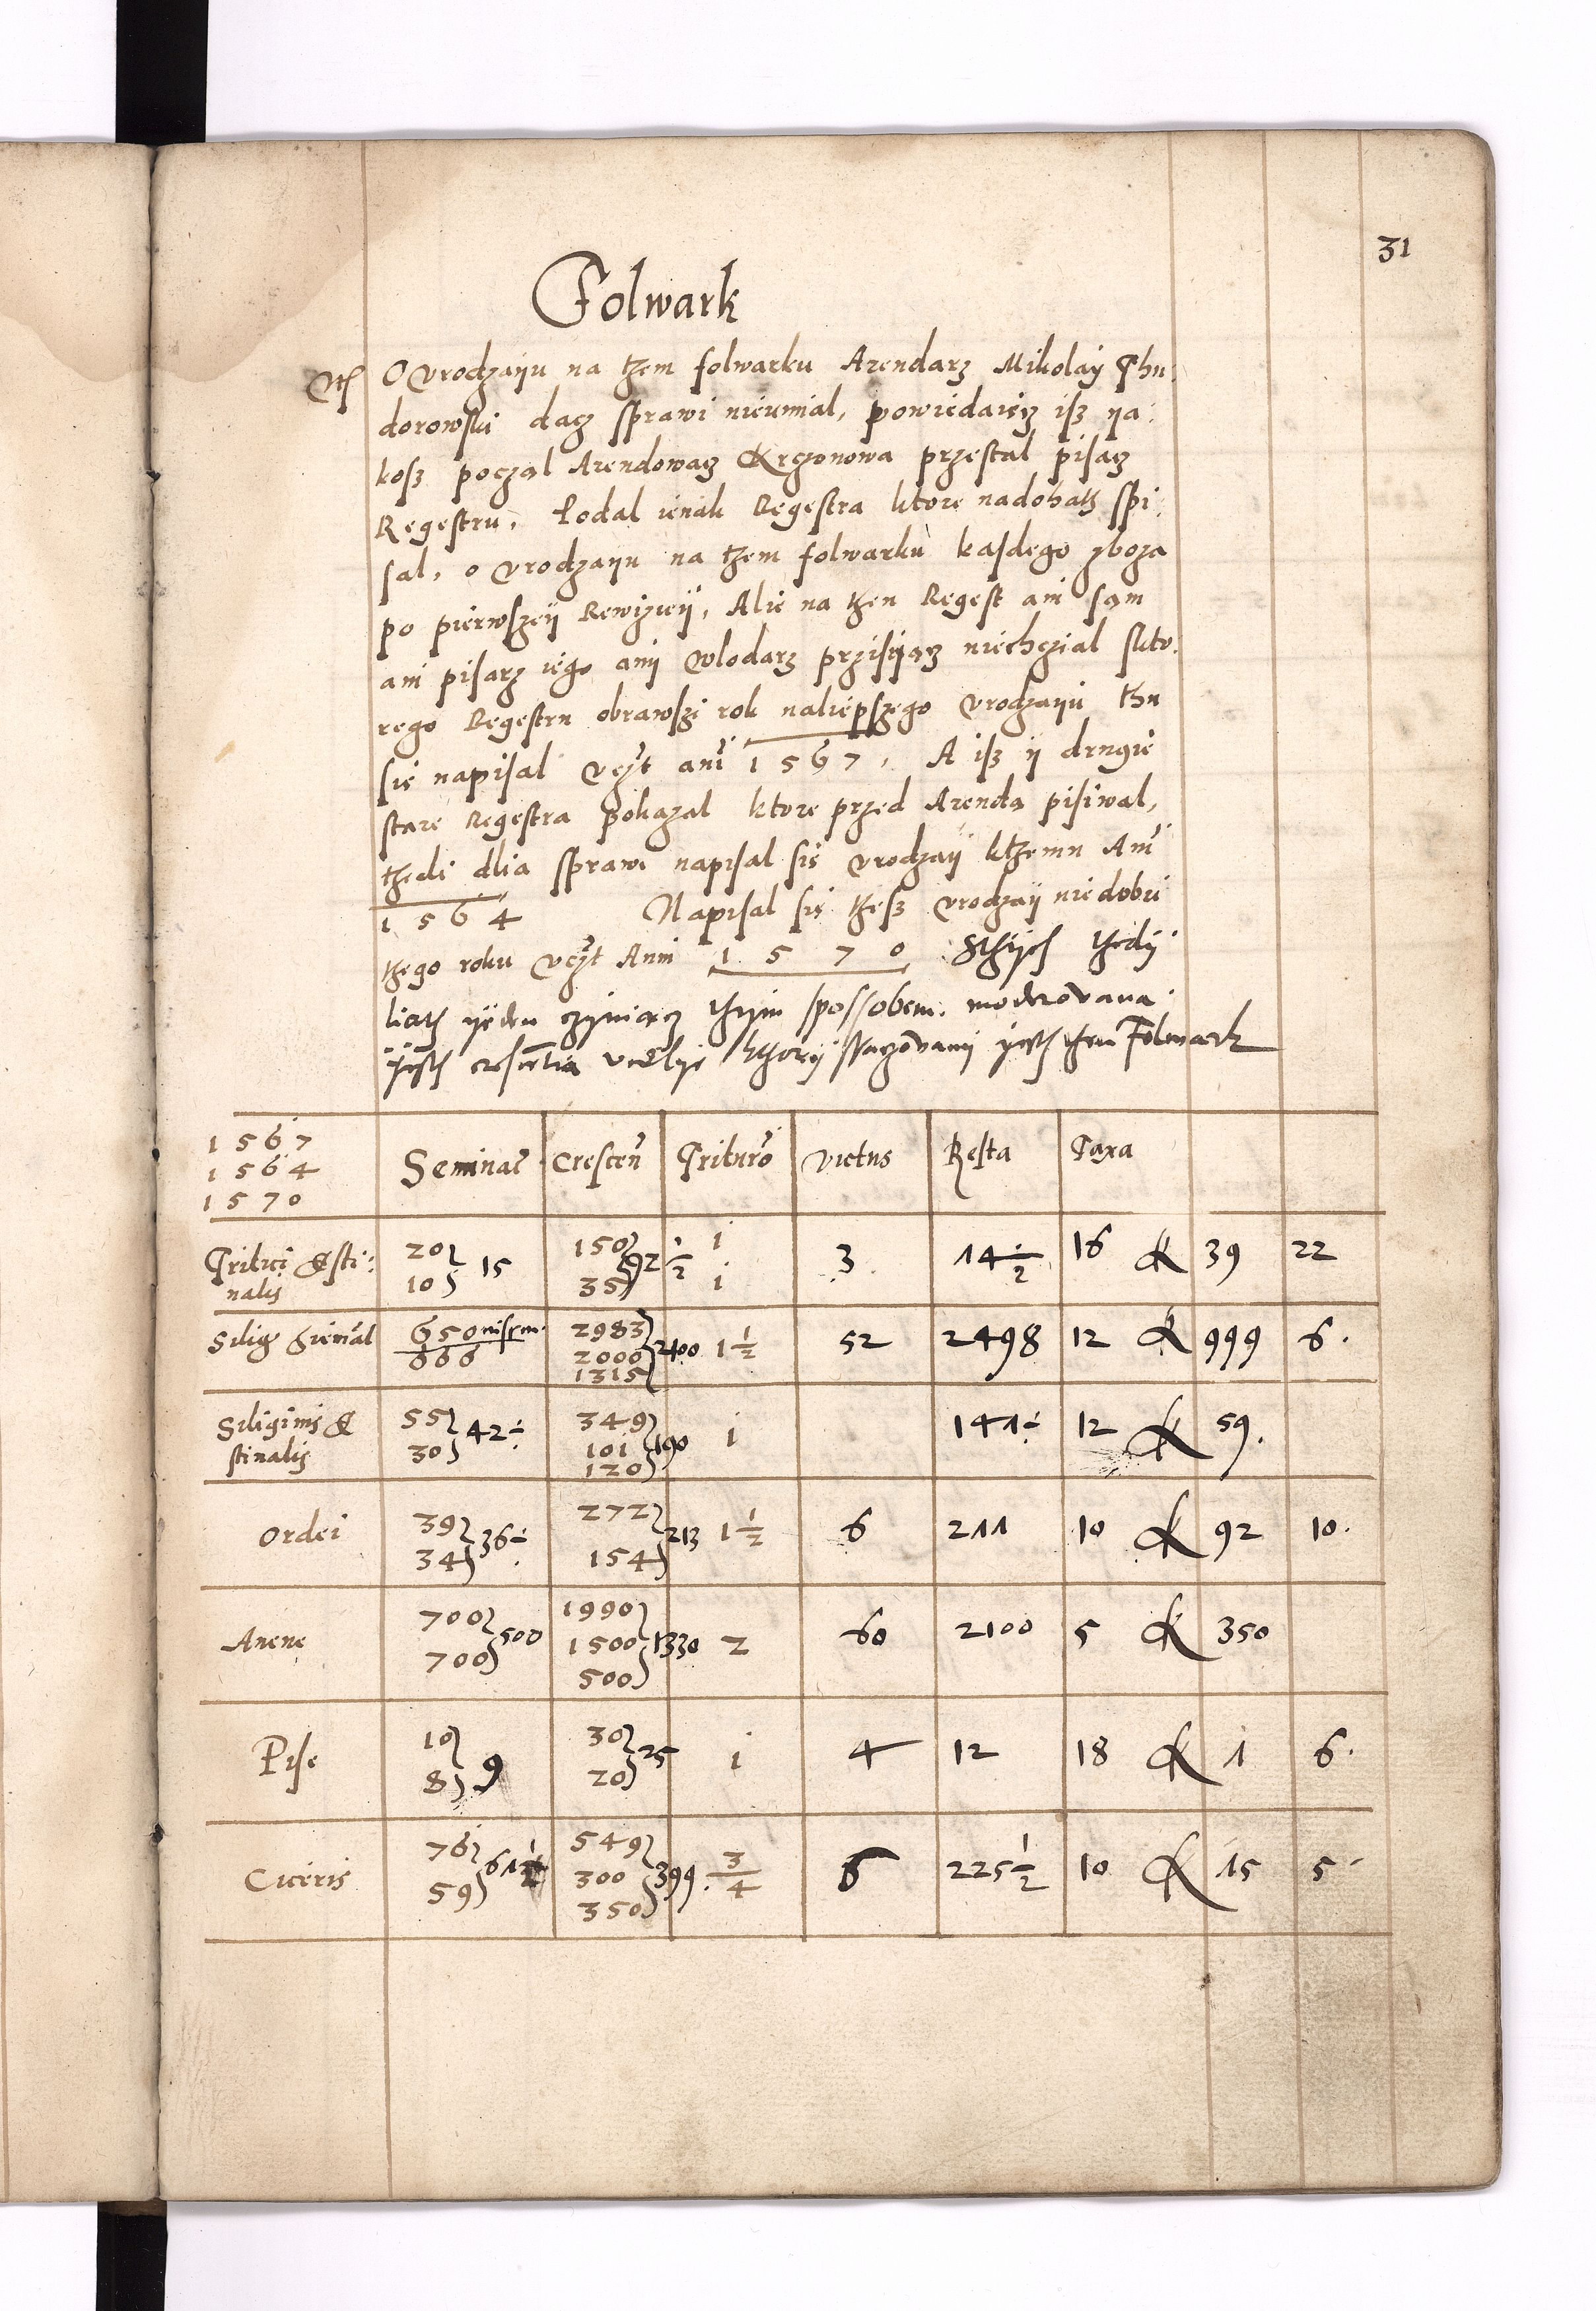 31
Folwark
O vrodzaiju na tzem folwarku Arendarz Mikolay Thu
dorowski dacz sprawi nieumial, powiedaiącz isz ya:
kosz poczal Arendowacz Krczonowa przestal pisacz
Regestru. Podal ienak Regestra ktore spi:
sal, o vrodzaiju na tzem folwarku kasdego zboza
po pierwszeij Rewizieij, Alie na then Regest ani sąm
ani pisarz iego anij wlodarz przisijącz niechczial
rego Regestru obrawszi rok naliepszego vrodzaiju thu
się napisal vczt anī 1567, A isz ij drugie
stare Regestra pokazal ktore przed Arendą pisiwal,
thedi dlia sprawi napisal się vrodzaij ktzemu Anī
1564 Napisal się thesz vrodzaij niedobri
tzego roku vczt Anni 1570 Sthÿch thedÿ
liath ÿeden czÿniącz thÿm spossobem moderovana
ÿesth crescētia vedlÿe kthorÿ ssaczovanÿ ÿesth then Folwark
1567
1564
1570
Seminať Crescēn Trituro victus Resta Taxa
Tritici Esti:
nalis
20 10 15 150 35 92 1/2 1 1 3 14 1/2 16 39 22
Silig hiemal 650 666 2983 2000 1315 2400 1 1/2 52 2498 12 999 6.
Siliginis E
stinalis
55 30 42 349 101 120 190 1 141 12 59.
Ordei 39 34 36 272 154 213 1 1/2 6 211 10 92 10.
Auene 700 700 500 1990 1500 500 1330 2 60 2100 5 350
Pise 10 8 9 30 20 25 1 4 12 18 1 6.
Ciceris 76 59 549 300 350 399. 3/4 6 225 1/2 10 15 5